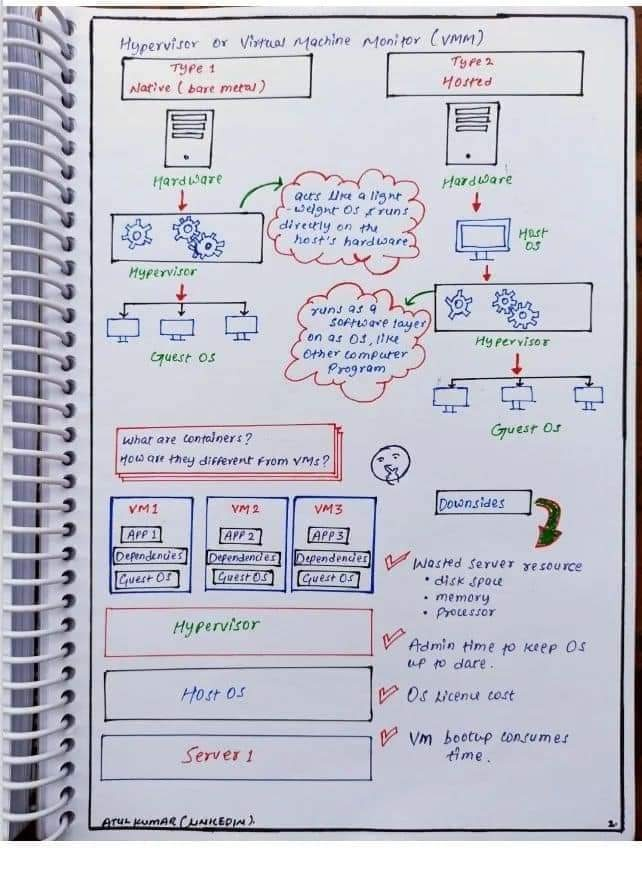 Hypervisor or Virtual Machine Monitor (VMM)
Type 1
Native (bare metal)
Type 2
Hosted
Hardware
acts like a light
-weight OS & runs
directly on the
host's hardware
Hypervisor
Guest OS
Hardware
Host
OS
runs as a
software layer
on as OS, like
other computer
Program
Hypervisor
Guest OS
What are containers?
How are they different from VMs?
VM1
APP 1
Dependencies
Guest OS
VM2
APP 2
Dependencies
Guest OS
VM3
APP 3
Dependencies
Guest OS
Hypervisor
Host OS
Server 1
Downsides
Wasted server resource
• disk space
• memory
• processor
Admin time to keep OS
up to dare.
OS licence cost
VM bootup consumes
time.
ATUL KUMAR (LINKEDIN).
2